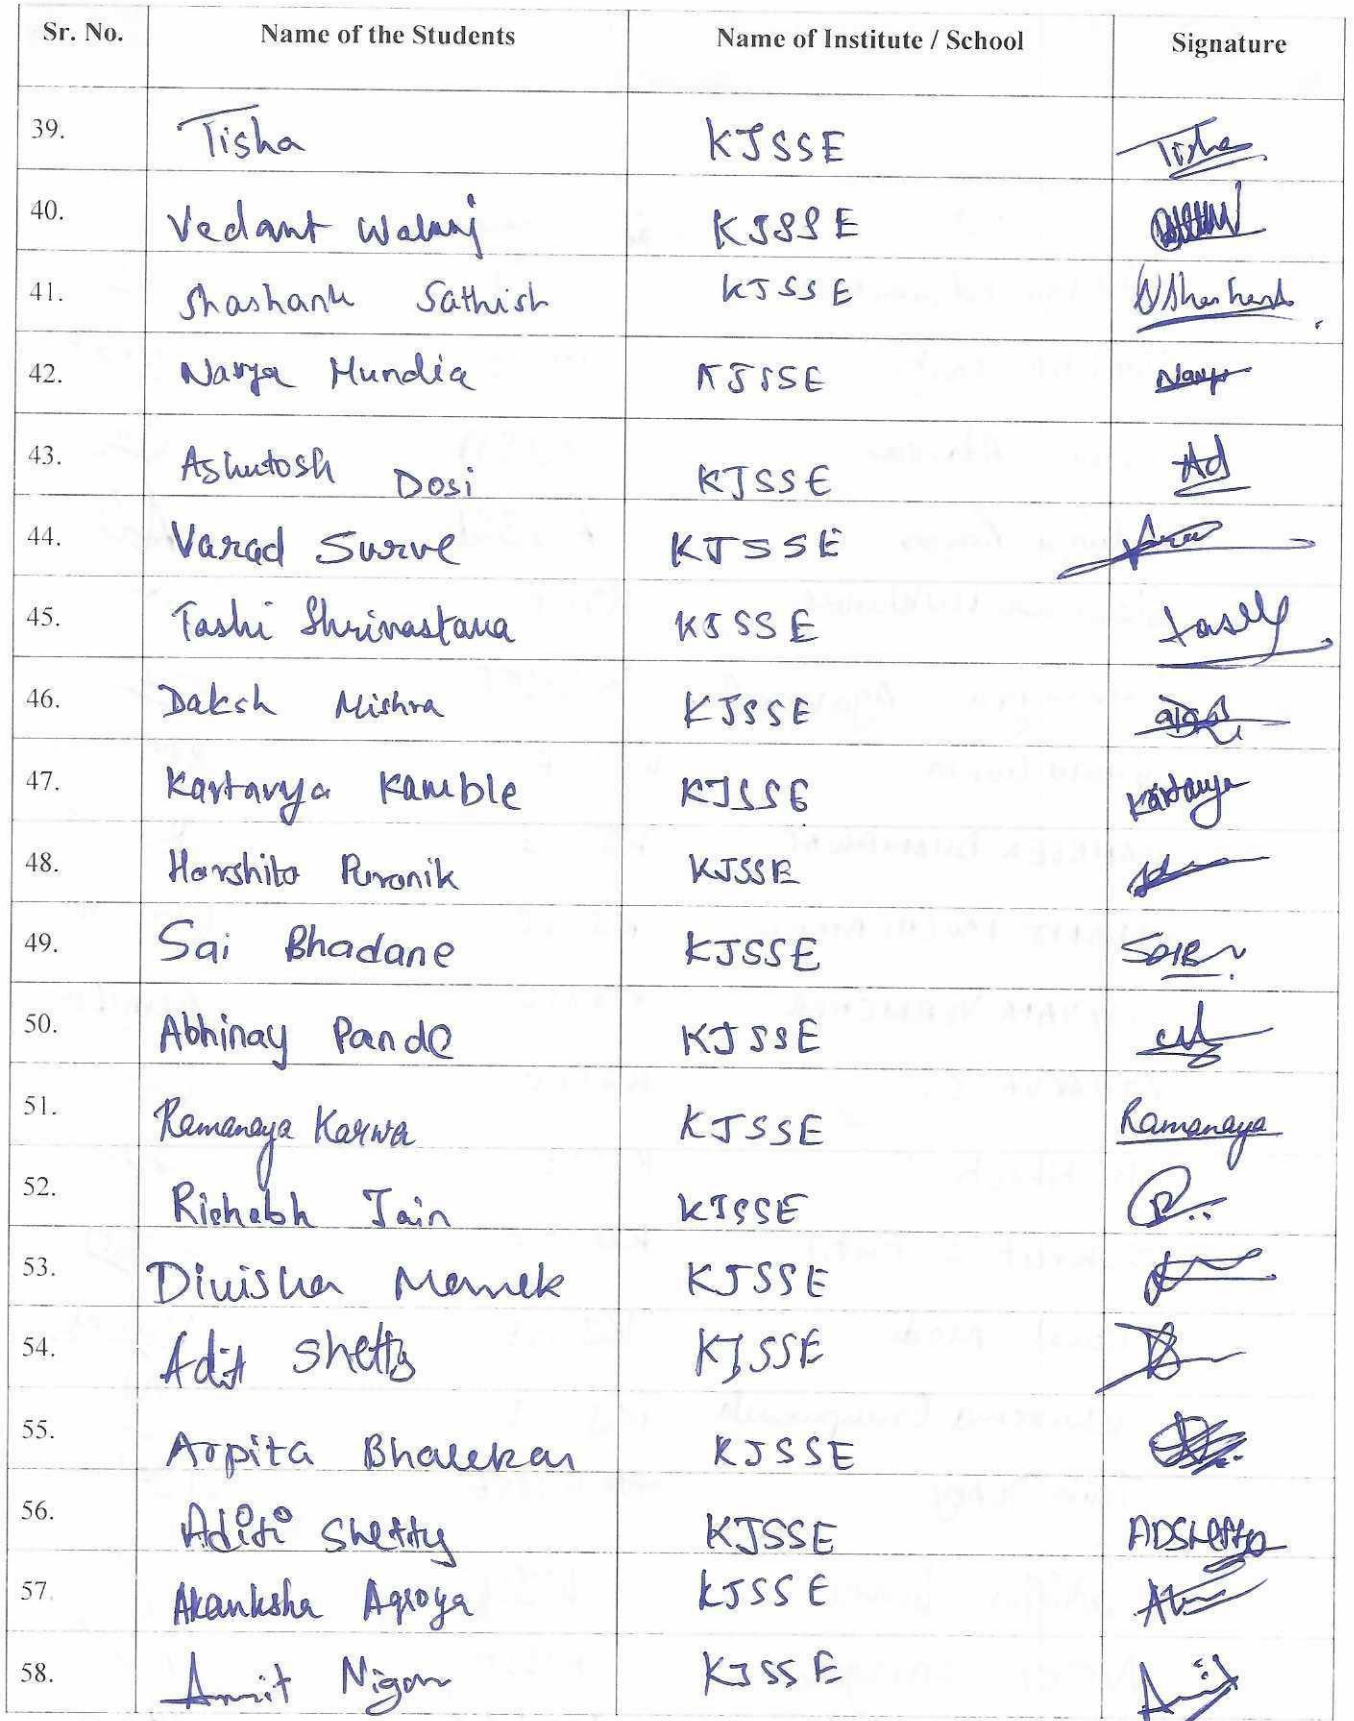 Sr. No. Name of the Students Name of Institute / School Signature
39. Tisha KJSSE Tisha
40. Vedant Walunj KJSSE
41. Shashank Sathish KJSSE
42. Navya Mundia KJSSE Navya
43. Ashutosh Dosi KJSSE Ad
44. Varad Surve KJSSE
45. Tashi Shrivastava KJSSE
46. Daksh Mishra KJSSE
47. Kartavya Kamble KJSSE Kartavya
48. Harshita Puranik KJSSE
49. Sai Bhadane KJSSE
50. Abhinay Pande KJSSE
51. Ramanaya Karwa KJSSE Ramanaya
52. Rishabh Jain KJSSE
53. Divisha KJSSE
54. Adit Shetty KJSSE
55. Arpita Bhalekar KJSSE
56. Aditi Shetty KJSSE ADShetty
57. Akanksha KJSSE
58. Amrit Nigam KJSSE Amrit